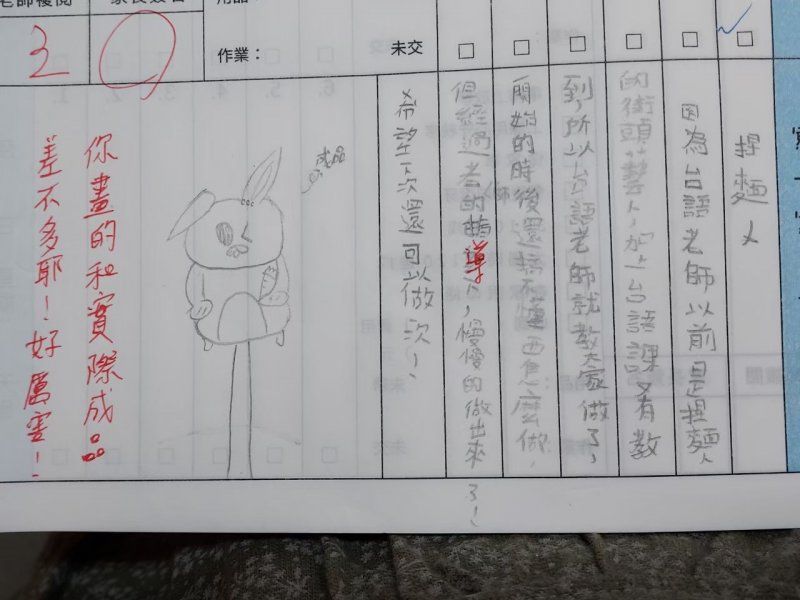 作業：
未交
捏麵人
因為台語老師以前是捏麵人
的街頭藝人，加上台語課又有教
到，所以台語老師就教大家做了，
開始的時後還搞不懂要怎麼做，
但經過老師的指導下，慢慢的做出來了！
希望下次還可以做次！
成品
你畫的和實際成品
差不多耶！好厲害！